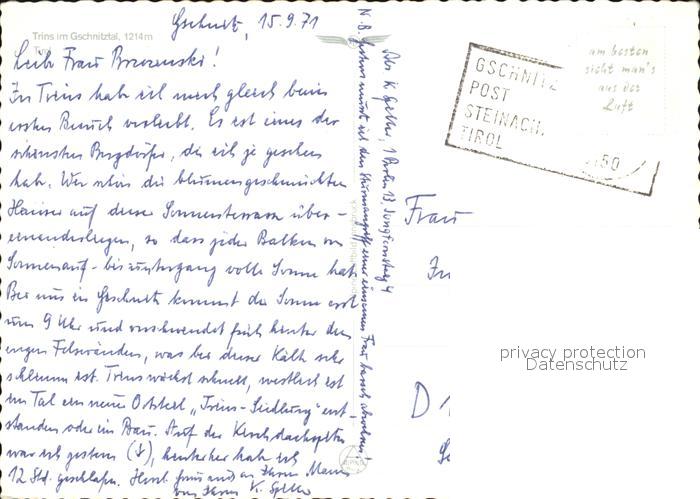 Trins im Gschnitztal, 1214m
Tirol
Gschnitz, 15.9.71
Liebe Frau Brzezenski!
In Trins hab ich mich gleich beim
ersten Besuch verliebt. Es ist eines der
schönsten Bergdörfer, die ich je gesehen
hab. Wer schön die blumengeschmückten
Häuser auf dieser Sonnenterrasse über-
einanderliegen, so dass jeder Balken von
Sonnenauf- bis untergang volle Sonne hat.
Bei uns in Gschnitz kommt die Sonne erst
um 9 Uhr und verschwindet früh hinter den
engen Felswänden, was bei dieser Kälte sehr
schlimm ist. Trins wächst schnell, westlich ist
im Tal ein neuer Ortsteil „Trins-Siedlung" ent-
standen oder im Bau. Auf der Kirchdachspitze
war ich gestern (↓), hinterher hab ich
12 Std. geschlafen. Herzl. Gruss und an Ihren Mann
von Ihrem K.
N.B. Gestern musst ich den
einer einsamen Frau
Abs. K. 1 Berlin 13, Jungfernsteig 4
GSCHNITZ
POST
STEINACH,
TIROL
am besten
sieht man's
aus der
Luft
150
Frau
In
D 1
privacy protection
Datenschutz